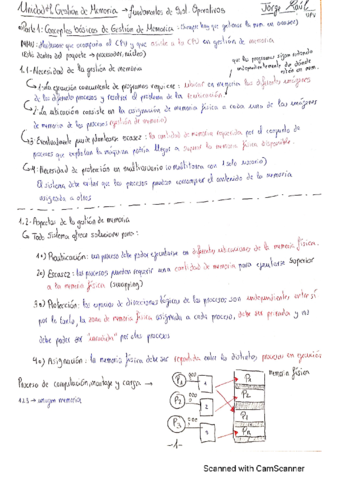 Unidad 4 Gestión de Memoria → fundamentos de Sist. Operativos
UPV
Parte 1: Conceptos básicos de Gestión de Memoria: (Siempre hay que gestionar la mem. en accesos)
MMU: Hardware que acompaña al CPU y que asiste al CPU en gestión de memoria
(Está dentro del paquete → procesador, núcleo)
1.1- Necesidad de la gestión de memoria
que los programas sigan estando
independientemente de dónde
estén en mem.
1: La ejecución concurrente de programas requiere: ubicar en memoria las diferentes imágenes
de los diferentes procesos y resolver el problema de la reubicación
2: La ubicación consiste en la asignación de memoria física a cada una de las imágenes
de memoria de los procesos (gestión de memoria)
3: Eventualmente puede plantearse escasez: la cantidad de memoria requerida por el conjunto de
procesos que explotan la máquina podría llegar a superar la memoria física disponible.
4: Necesidad de protección en multiusuario (o multitarea con 1 solo usuario)
El sistema debe evitar que los procesos puedan corromper el contenido de la memoria
asignada a otros
1.2- Aspectos de la gestión de memoria
Todo Sistema ofrece soluciones para:
1º) Reubicación: un proceso debe poder ejecutarse en diferentes ubicaciones de la memoria física.
2º) Escasez: los procesos pueden requerir una cantidad de memoria para ejecutarse superior
a la memoria física (swapping)
3º) Protección: los espacios de direcciones lógicas de los procesos son independientes entre sí
por lo tanto, la zona de memoria física asignada a cada proceso, debe ser privada y no
debe poder ser "invadida" por otros procesos
4º) Asignación: la memoria física debe ser repartida entre los distintos procesos en ejecución
Proceso de compilación, montaje y carga →
memoria física
P1
1
P1
P2
2
P2
P3
3
P3
-1-
Scanned with CamScanner